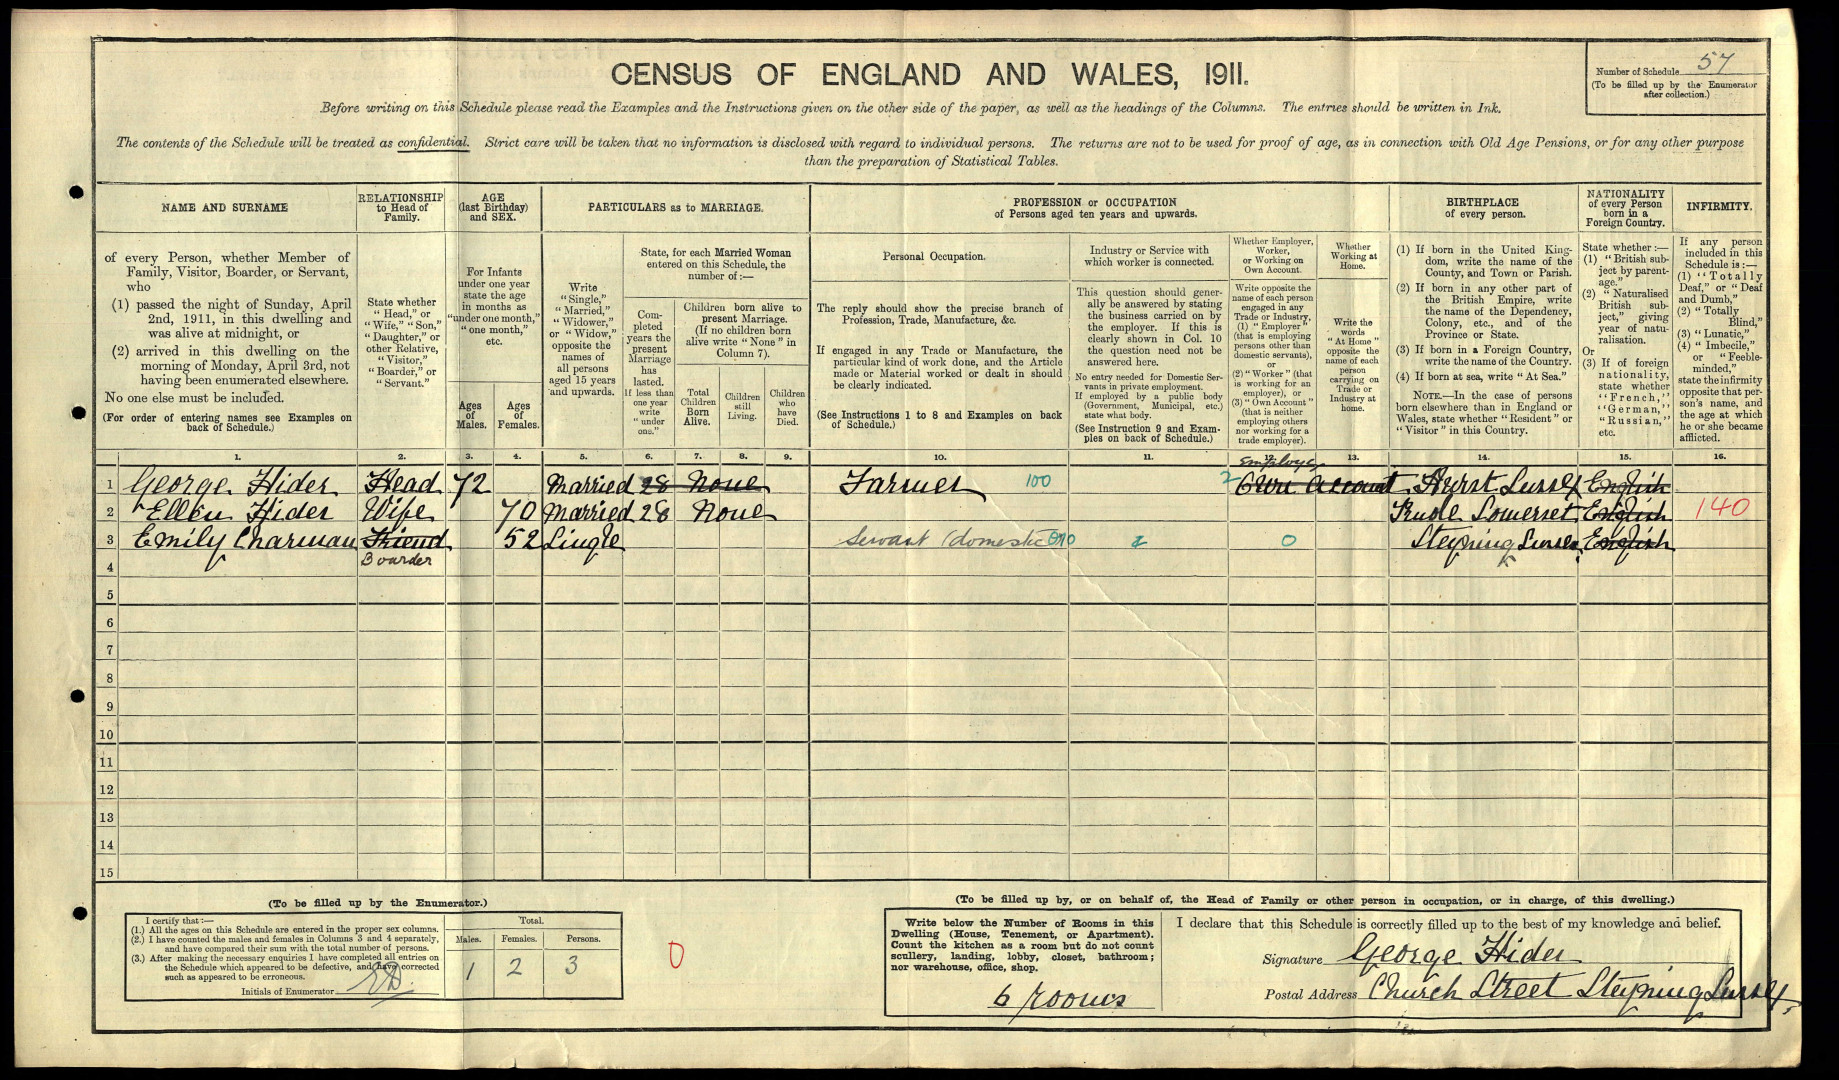 CENSUS OF ENGLAND AND WALES, 1911.
Number of Schedule 57
(To be filled up by the Enumerator
after collection.)
Before writing on this Schedule please read the Examples and the Instructions given on the other side of the paper, as well as the headings of the Columns. The entries should be written in Ink.
The contents of the Schedule will be treated as confidential. Strict care will be taken that no information is disclosed with regard to individual persons. The returns are not to be used for proof of age, as in connection with Old Age Pensions, or for any other purpose
than the preparation of Statistical Tables.
NAME AND SURNAME
of every Person, whether Member of
Family, Visitor, Boarder, or Servant,
who
(1) passed the night of Sunday, April
2nd, 1911, in this dwelling and
was alive at midnight, or
(2) arrived in this dwelling on the
morning of Monday, April 3rd, not
having been enumerated elsewhere.
No one else must be included.
(For order of entering names see Examples on
back of Schedule.)
RELATIONSHIP
to Head of
Family.
State whether
"Head," or
"Wife," "Son,"
"Daughter," or
other Relative,
"Visitor,"
"Boarder," or
"Servant."
AGE
(last Birthday)
and SEX.
For Infants
under one year
state the age
in months as
"under one month,"
"one month,"
etc.
Ages
of
Males.
Ages
of
Females.
PARTICULARS as to MARRIAGE.
Write
"Single,"
"Married,"
"Widower,"
or "Widow,"
opposite the
names of
all persons
aged 15 years
and upwards.
State, for each Married Woman
entered on this Schedule, the
number of:—
Com-
pleted
years the
present
Marriage
has
lasted.
If less than
one year
write
"under
one."
Children born alive to
present Marriage.
(If no children born
alive write "None" in
Column 7).
Total
Children
Born
Alive.
Children
still
Living.
Children
who
have
Died.
PROFESSION or OCCUPATION
of Persons aged ten years and upwards.
Personal Occupation.
The reply should show the precise branch of
Profession, Trade, Manufacture, &c.
If engaged in any Trade or Manufacture, the
particular kind of work done, and the Article
made or Material worked or dealt in should
be clearly indicated.
(See Instructions 1 to 8 and Examples on back
of Schedule.)
Industry or Service with
which worker is connected.
This question should gener-
ally be answered by stating
the business carried on by
the employer. If this is
clearly shown in Col. 10
the question need not be
answered here.
No entry needed for Domestic Ser-
vants in private employment.
If employed by a public body
(Government, Municipal, etc.)
state what body.
(See Instruction 9 and Exam-
ples on back of Schedule.)
Whether Employer,
Worker,
or Working on
Own Account.
Write opposite the
name of each person
engaged in any
Trade or Industry,
(1) "Employer"
(that is employing
persons other than
domestic servants),
or
(2) "Worker" (that
is working for an
employer), or
(3) "Own Account"
(that is neither
employing others
nor working for a
trade employer).
Whether
Working at
Home.
Write the
words
"At Home"
opposite the
name of each
person
carrying on
Trade or
Industry at
home.
BIRTHPLACE
of every person.
(1) If born in the United King-
dom, write the name of the
County, and Town or Parish.
(2) If born in any other part of
the British Empire, write
the name of the Dependency,
Colony, etc., and of the
Province or State.
(3) If born in a Foreign Country,
write the name of the Country.
(4) If born at sea, write "At Sea."
NOTE.—In the case of persons
born elsewhere than in England or
Wales, state whether "Resident" or
"Visitor" in this Country.
NATIONALITY
of every Person
born in a
Foreign Country.
State whether:—
(1) "British sub-
ject by parent-
age."
(2) "Naturalised
British sub-
ject," giving
year of natu-
ralisation.
Or
(3) If of foreign
nationality,
state whether
"French,"
"German,"
"Russian,"
etc.
INFIRMITY.
If any person
included in this
Schedule is:—
(1) "Totally
Deaf," or "Deaf
and Dumb,"
(2) "Totally
Blind,"
(3) "Lunatic,"
(4) "Imbecile,"
or "Feeble-
minded,"
state the infirmity
opposite that per-
son's name, and
the age at which
he or she became
afflicted.
1. 2. 3. 4. 5. 6. 7. 8. 9. 10. 11. 12. 13. 14. 15. 16.
Employer
1 George Hider Head 72 Married 28 None Farmer 100 2 Own Account Hurst Sussex English
2 Ellen Hider Wife 70 Married 28 None Somerset English 140
3 Emily Charman Friend 52 Single Servant (domestic) 010 2 0 Steyning Sussex English
Boarder
4
5
6
7
8
9
10
11
12
13
14
15
(To be filled up by the Enumerator.)
I certify that:—
(1.) All the ages on this Schedule are entered in the proper sex columns.
(2.) I have counted the males and females in Columns 3 and 4 separately,
and have compared their sum with the total number of persons.
(3.) After making the necessary enquiries I have completed all entries on
the Schedule which appeared to be defective, and have corrected
such as appeared to be erroneous.
Initials of Enumerator
Total.
Males. Females. Persons.
1 2 3
0
(To be filled up by, or on behalf of, the Head of Family or other person in occupation, or in charge, of this dwelling.)
Write below the Number of Rooms in this
Dwelling (House, Tenement, or Apartment).
Count the kitchen as a room but do not count
scullery, landing, lobby, closet, bathroom;
nor warehouse, office, shop.
6 rooms
I declare that this Schedule is correctly filled up to the best of my knowledge and belief.
Signature George Hider
Postal Address Church Street Steyning Sussex